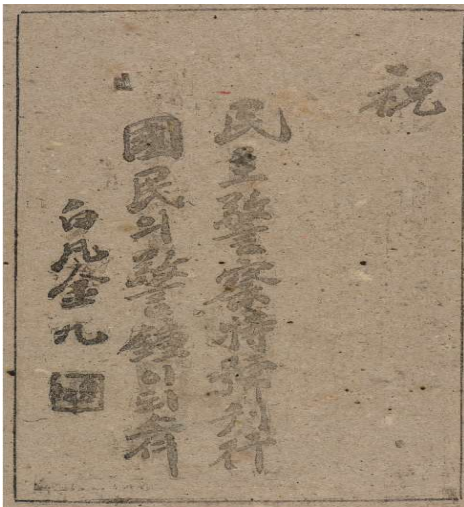 祝
民主警察特號刊行
國民의警鐘이되소서
白凡金九